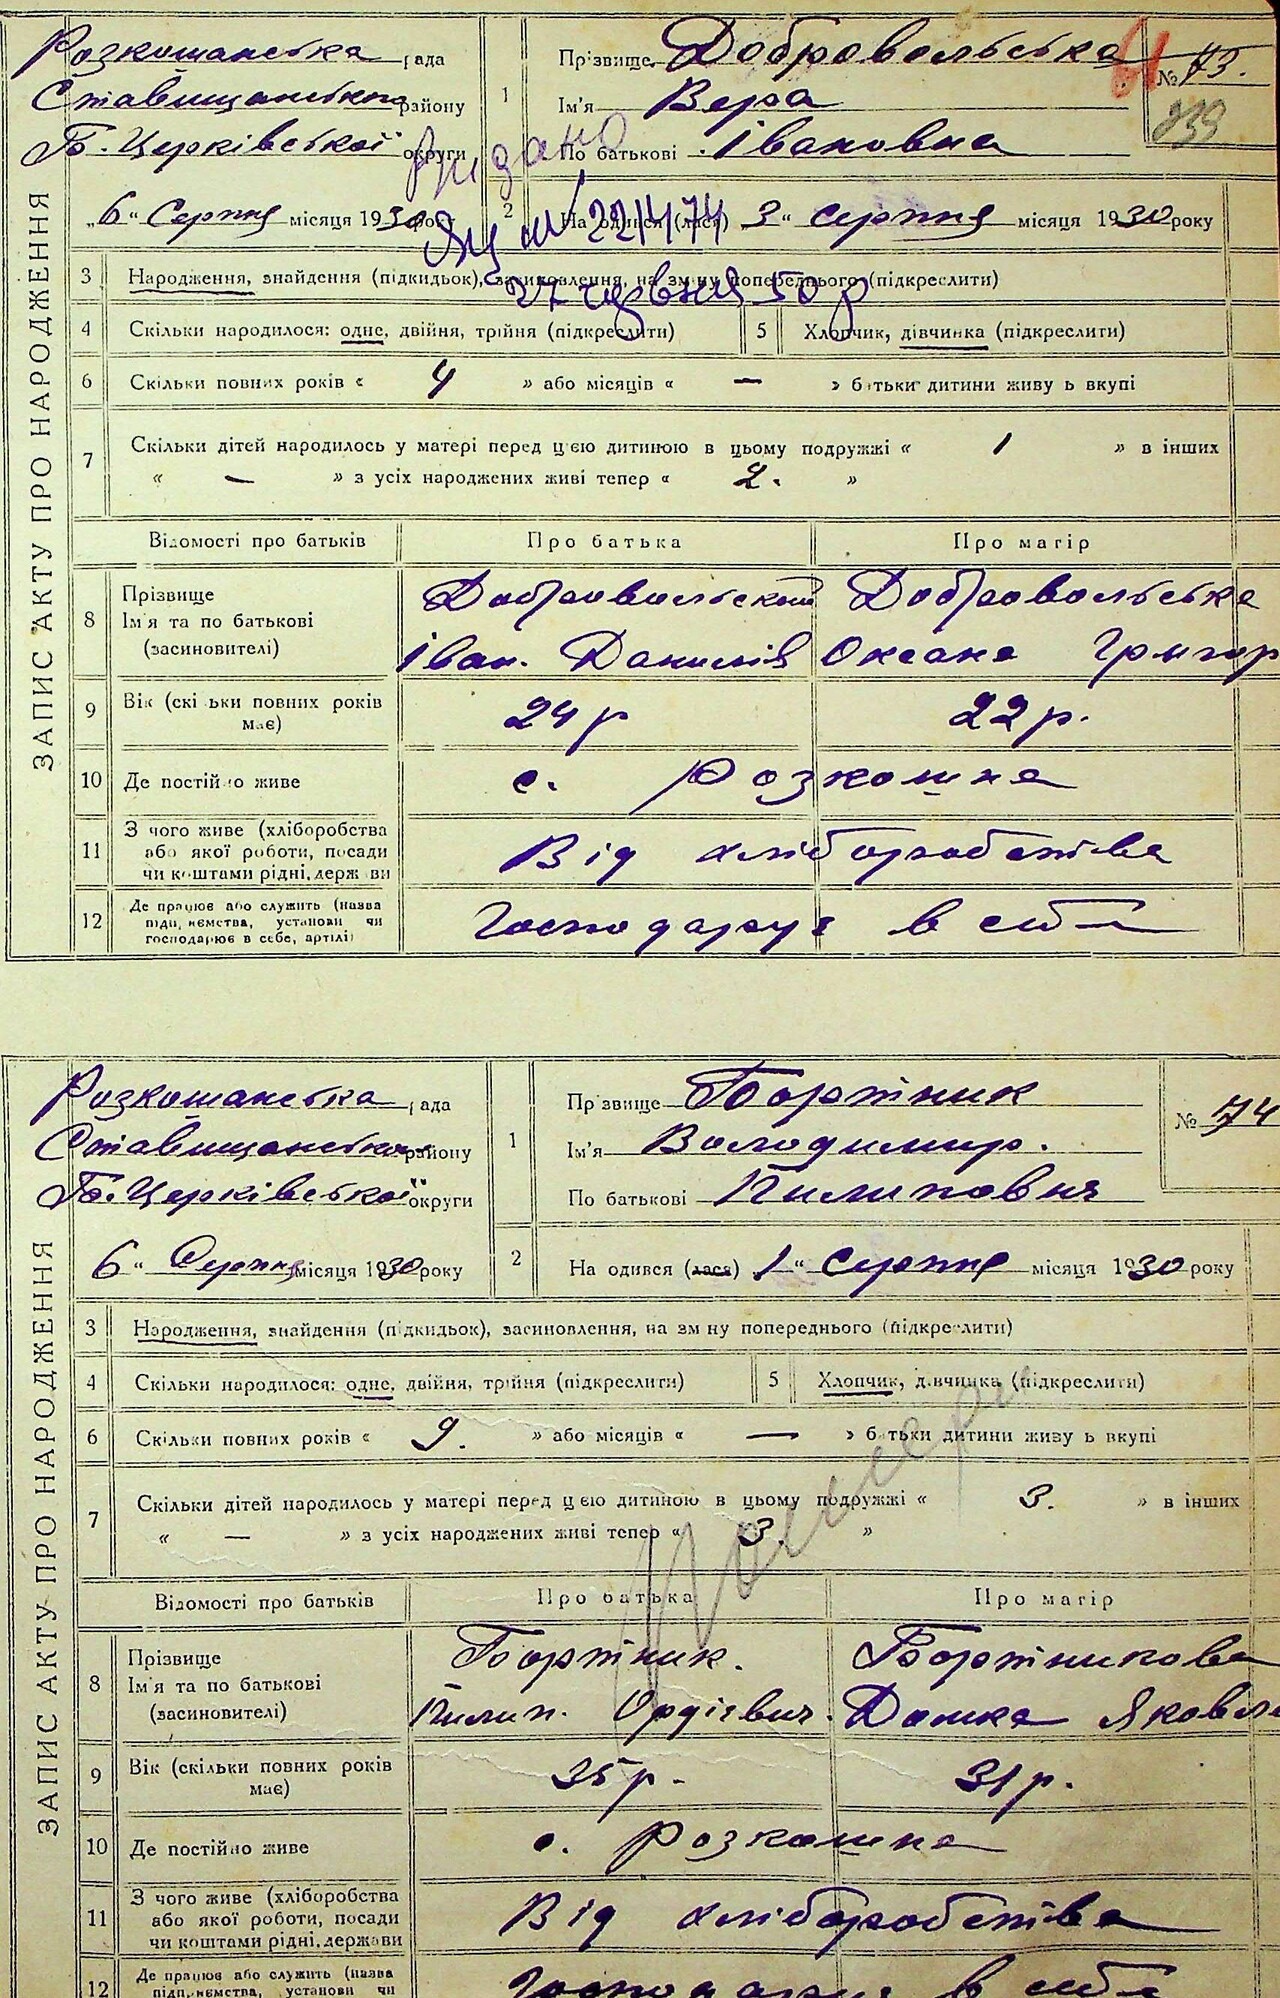 ЗАПИС АКТУ ПРО НАРОДЖЕННЯ
Розкошанська рада
Ставищанського району
Б. Церківської округи
„6“ Серпня місяця 1930 року
1 Прізвище Добровольська
Ім'я Вера
По батькові Івановна
№ 73.
61
239
Видано
22/4/74
27 червня 50 р
2 На одився (лася) „3“ серпня місяця 1930 року
3 Народження, знайдення (підкидьок), засиновлення, на зм ну попереднього (підкреслити)
4 Скільки народилося: одне, двійня, трійня (підкреслити) 5 Хлопчик, дівчинка (підкреслити)
6 Скільки повних років « 4 » або місяців « — » батьки дитини живу ь вкупі
7 Скільки дітей народилось у матері перед цією дитиною в цьому подружжі « 1 » в інших
« — » з усіх народжених живі тепер « 2. »
Відомості про батьків Про батька Про матір
8 Прізвище
Ім'я та по батькові
(засиновителі)
Добровольский Добровольська
Іван. Данилів Оксана Григор
9 Вік (скі ьки повних років має) 24 р 22 р.
10 Де постійно живе с. Розкошна
11 З чого живе (хліборобства
або якої роботи, посади
чи коштами рідні, держ ви
Від хліборобства
12 Де працює або служить (назва
підп, иємства, установи чи
господарює в себе, артілі)
Господарує в себе
ЗАПИС АКТУ ПРО НАРОДЖЕННЯ
Розкошанська рада
Ставищанського району
Б. Церківської округи
6 “ Серпня місяця 1930 року
1 Пр звище Бортник
Ім'я Володимир.
По батькові Пилипович
№ 74
2 На одився (лася) „1“ серпня місяця 1930 року
3 Народження, знайдення (підкидьок), засиновлення, на зм ну попереднього (підкреслити)
4 Скільки народилося: одне, двійня, трійня (підкреслити) 5 Хлопчик, дівчинка (підкреслити)
6 Скільки повних років « 9. » або місяців « — » батьки дитини живу ь вкупі
7 Скільки дітей народилось у матері перед цією дитиною в цьому подружжі « 3. » в інших
« — » з усіх народжених живі тепер « 3 »
Помер
Відомості про батьків Про батька Про матір
8 Прізвище
Ім'я та по батькові
(засиновителі)
Бортник. Бортникова
Пилип. Домка Яковл
9 Вік (скільки повних років має) 35 р. 31 р.
10 Де постійно живе с. Розкошна
11 З чого живе (хліборобства
або якої роботи, посади
чи коштами рідні, держави
Від хліборобства
12 Де працює або служить (назва
підп, иємства, установи чи
Господарує в себе